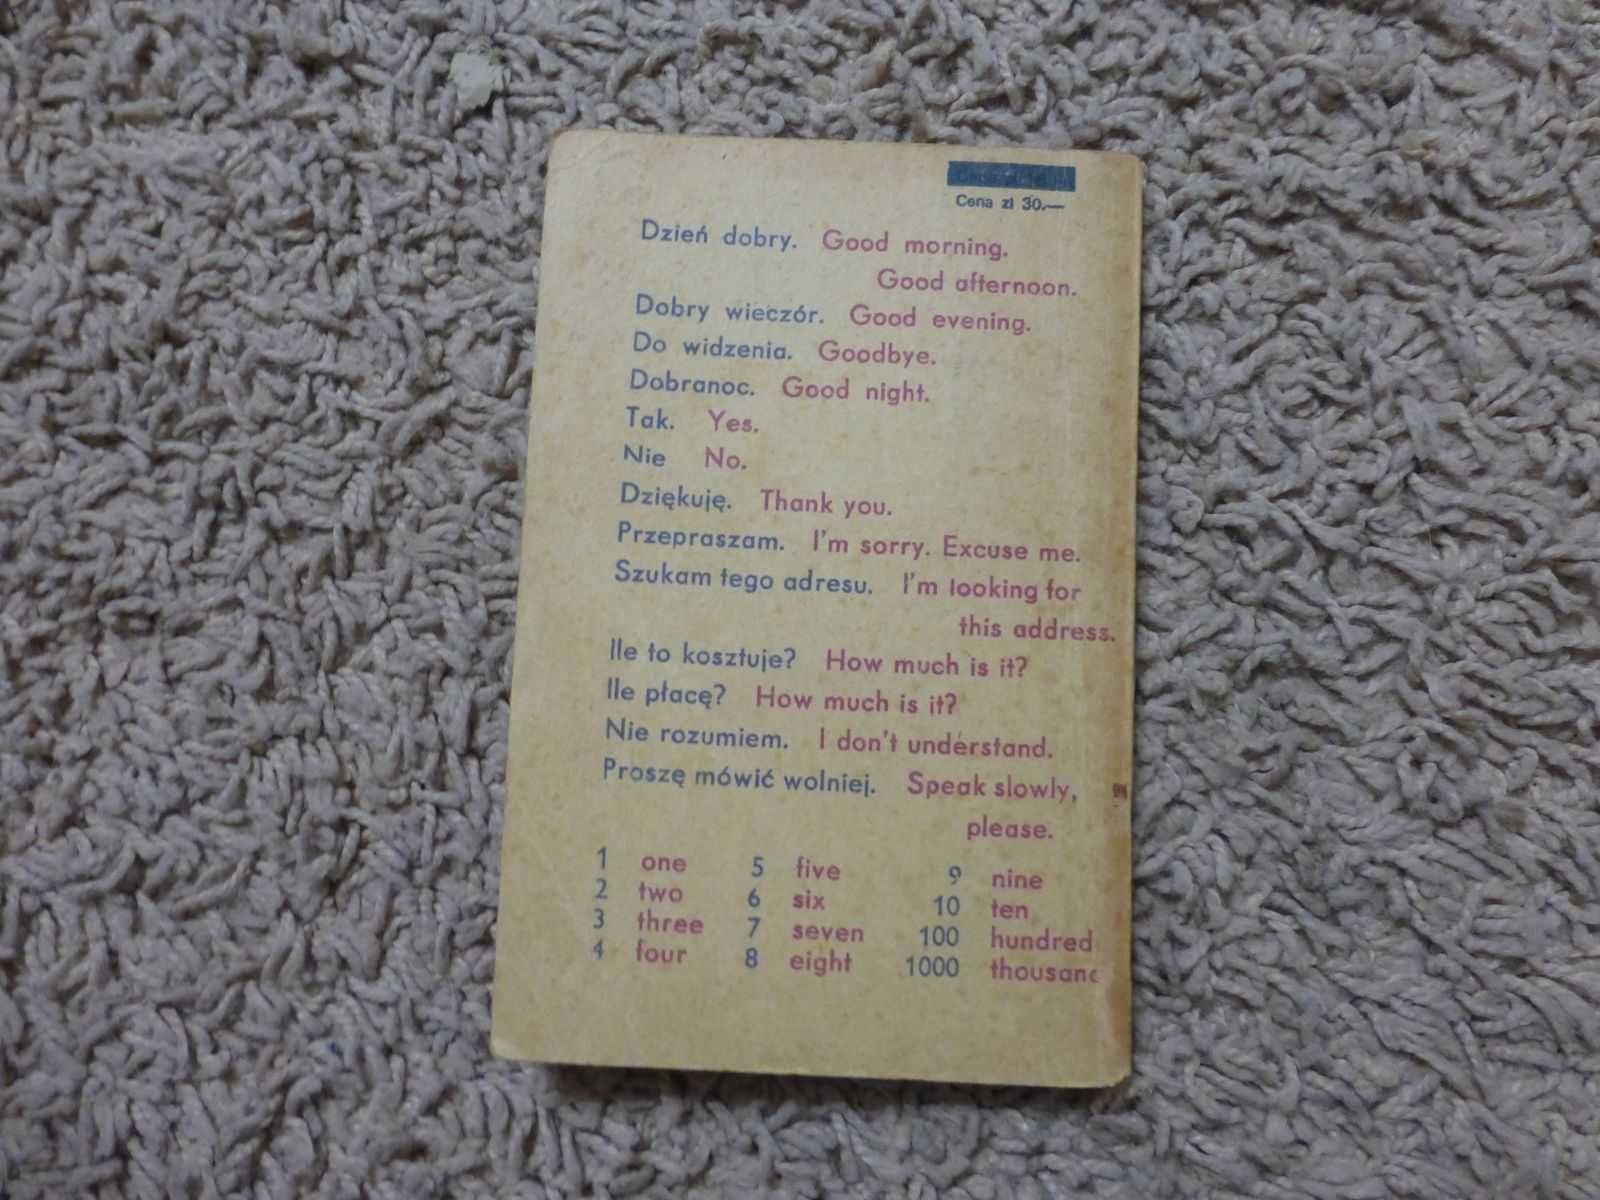 Cena zł 30.—
Dzień dobry. Good morning.
Good afternoon.
Dobry wieczór. Good evening.
Do widzenia. Goodbye.
Dobranoc. Good night.
Tak. Yes.
Nie No.
Dziękuję. Thank you.
Przepraszam. I'm sorry. Excuse me.
Szukam tego adresu. I'm looking for
this address.
Ile to kosztuje? How much is it?
Ile płacę? How much is it?
Nie rozumiem. I don't understand.
Proszę mówić wolniej. Speak slowly,
please.
1 one 5 five 9 nine
2 two 6 six 10 ten
3 three 7 seven 100 hundred
4 four 8 eight 1000 thousand